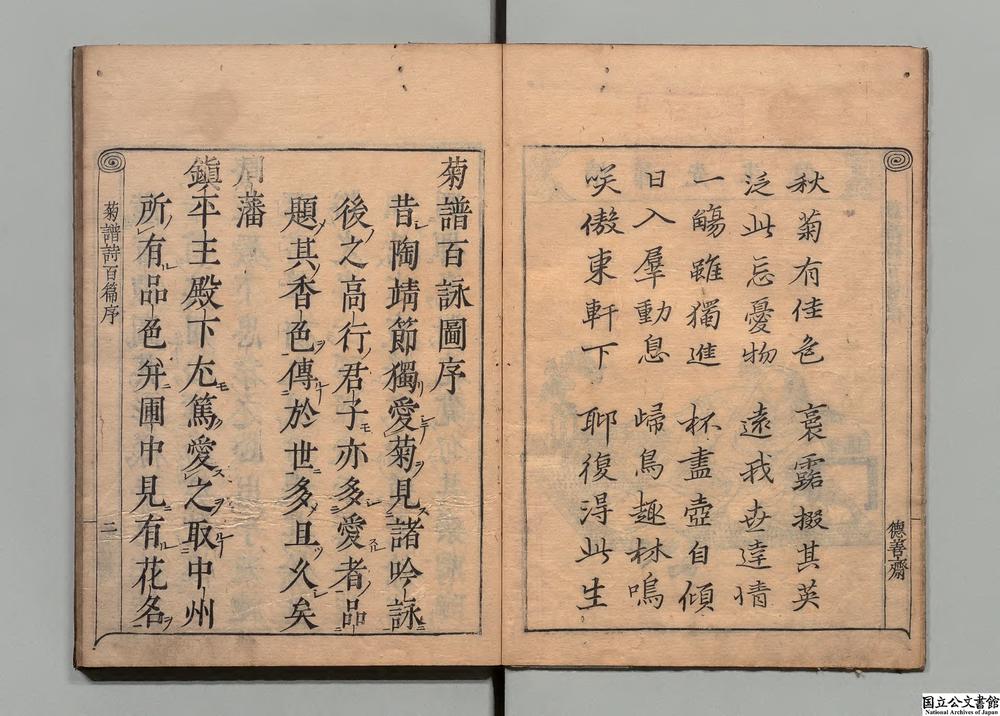 秋菊有佳色 裛露掇其英
泛此忘憂物 遠我𠀍達情
一觴雖獨進 杯盡壺自傾
日入羣動息 歸鳥趣林鳴
咲傲東軒下 耶復得此生
德善齋
菊譜百詠圖序
昔陶靖節獨愛菊見諸吟詠
後之高行君子亦多愛者品
題其香色傳於世多且久矣
周藩
鎮平王殿下尤篤愛之取中州
所有品色并圃中見有花各
菊譜詩百篇序
二
国立公文書館
National Archives of Japan